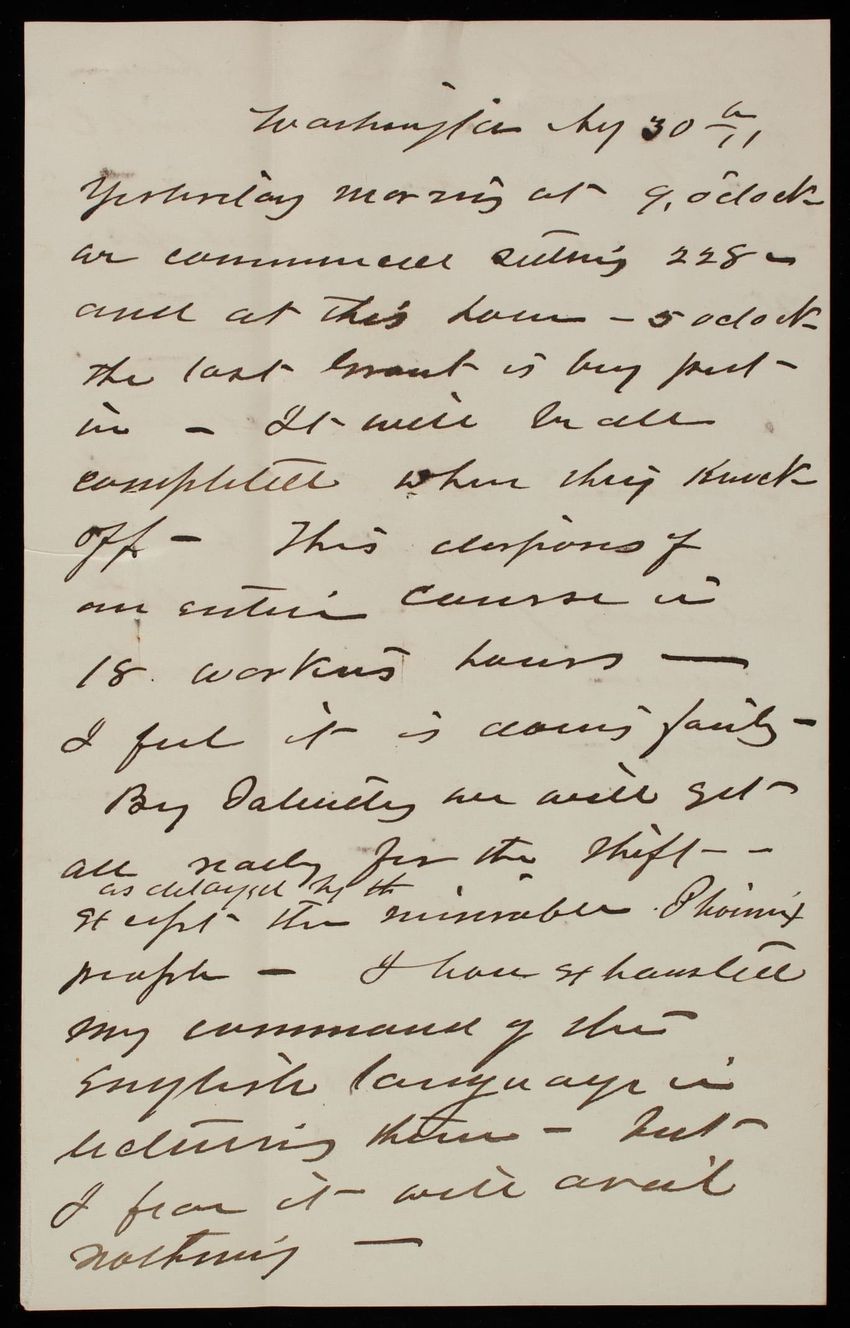 Washington Aug 30th
Yesterday morning at 9, o'clock
we commenced setting 228
and at this hour - 5 oclock
the last Granit is being put
in - It will be all
completed when they Knock
off - This disposes of
an entire Course in
18 working hours —
I feel it is doing fairly -
By Saturday we will get
all ready for the shift - -
as delayed by th
except the miserable Phoenix
people - I have exhausted
my command of the
English language in
lecturing them - but
I fear it will avail
nothing —